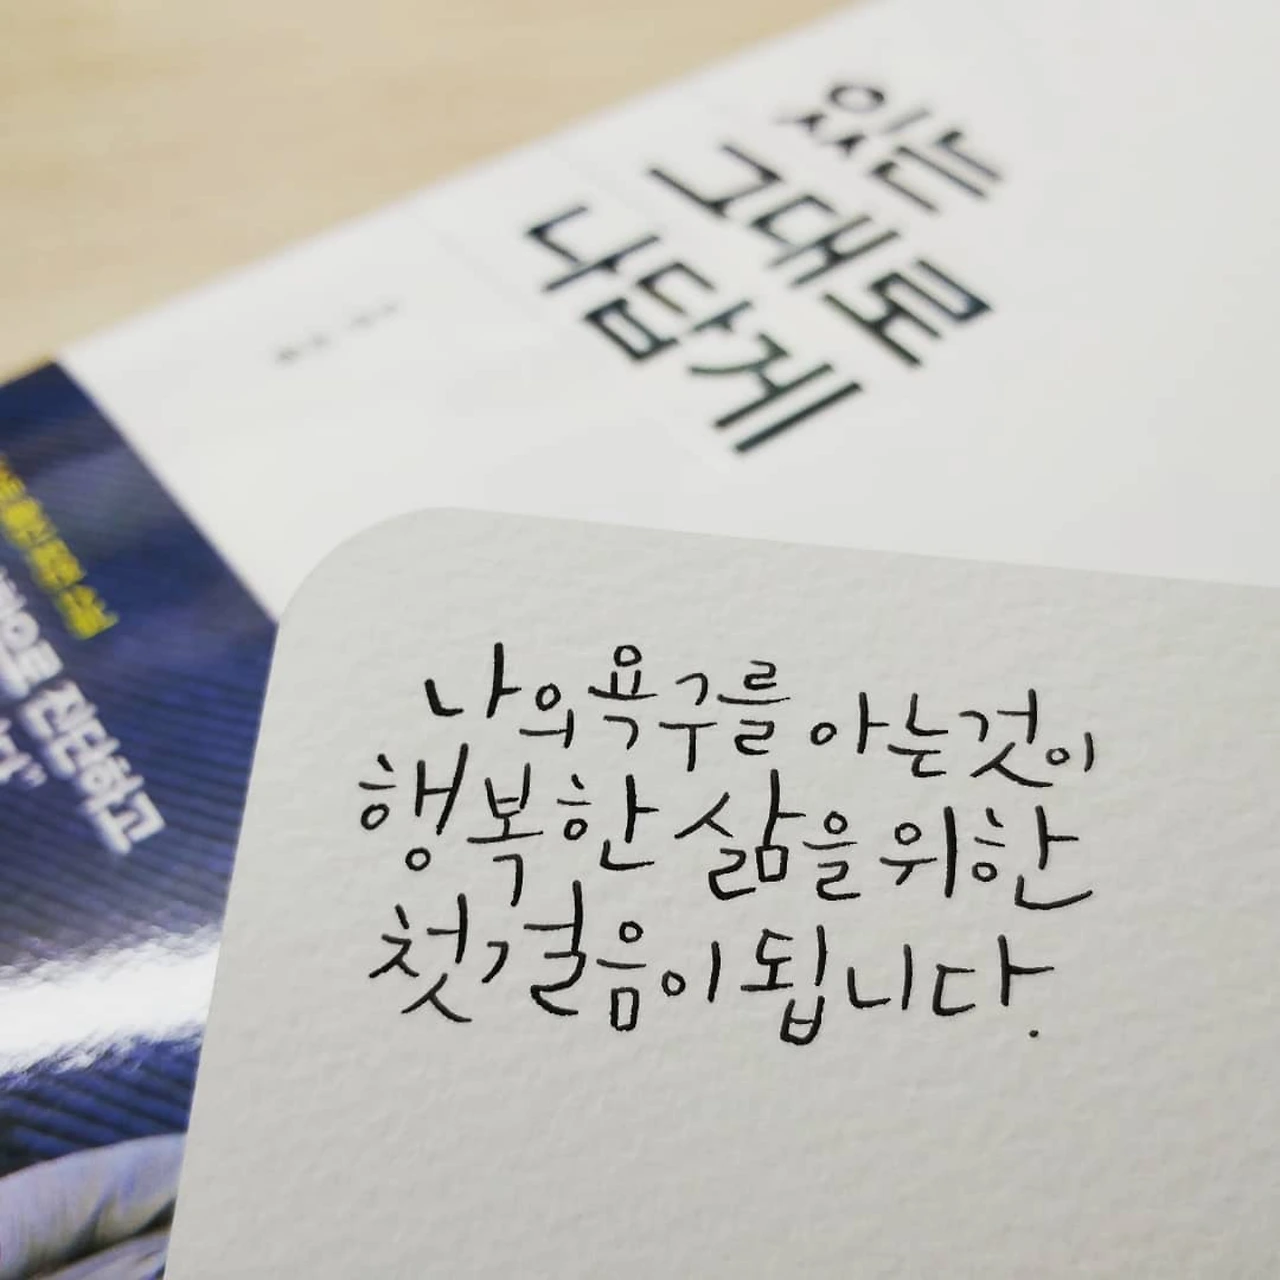 있는
그대로
나답게
진단하고
나의 욕구를 아는 것이
행복한 삶을 위한
첫걸음이 됩니다.